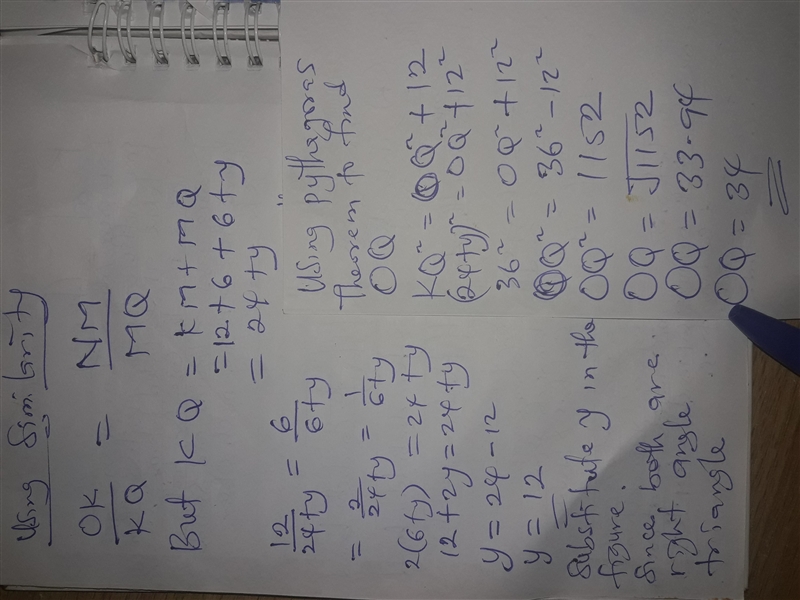 Using Similarity
OK/KQ = NM/MQ
But KQ = KM + MQ
= 12 + 6 + 6 + y
= 24 + y
12/24+y = 6/6+y
= 2/24+y = 1/6+y
2(6+y) = 24 + y
12 + 2y = 24 + y
y = 24 - 12
y = 12
Substitute y in the
figure.
Since both are
right angle
triangle
Using Pythagoras
Theorem to find
OQ
KQ² = OQ² + 12
(24+y)² = OQ² + 12²
36² = OQ² + 12²
OQ² = 36² - 12²
OQ² = 1152
OQ = √1152
OQ = 33.94
OQ = 34